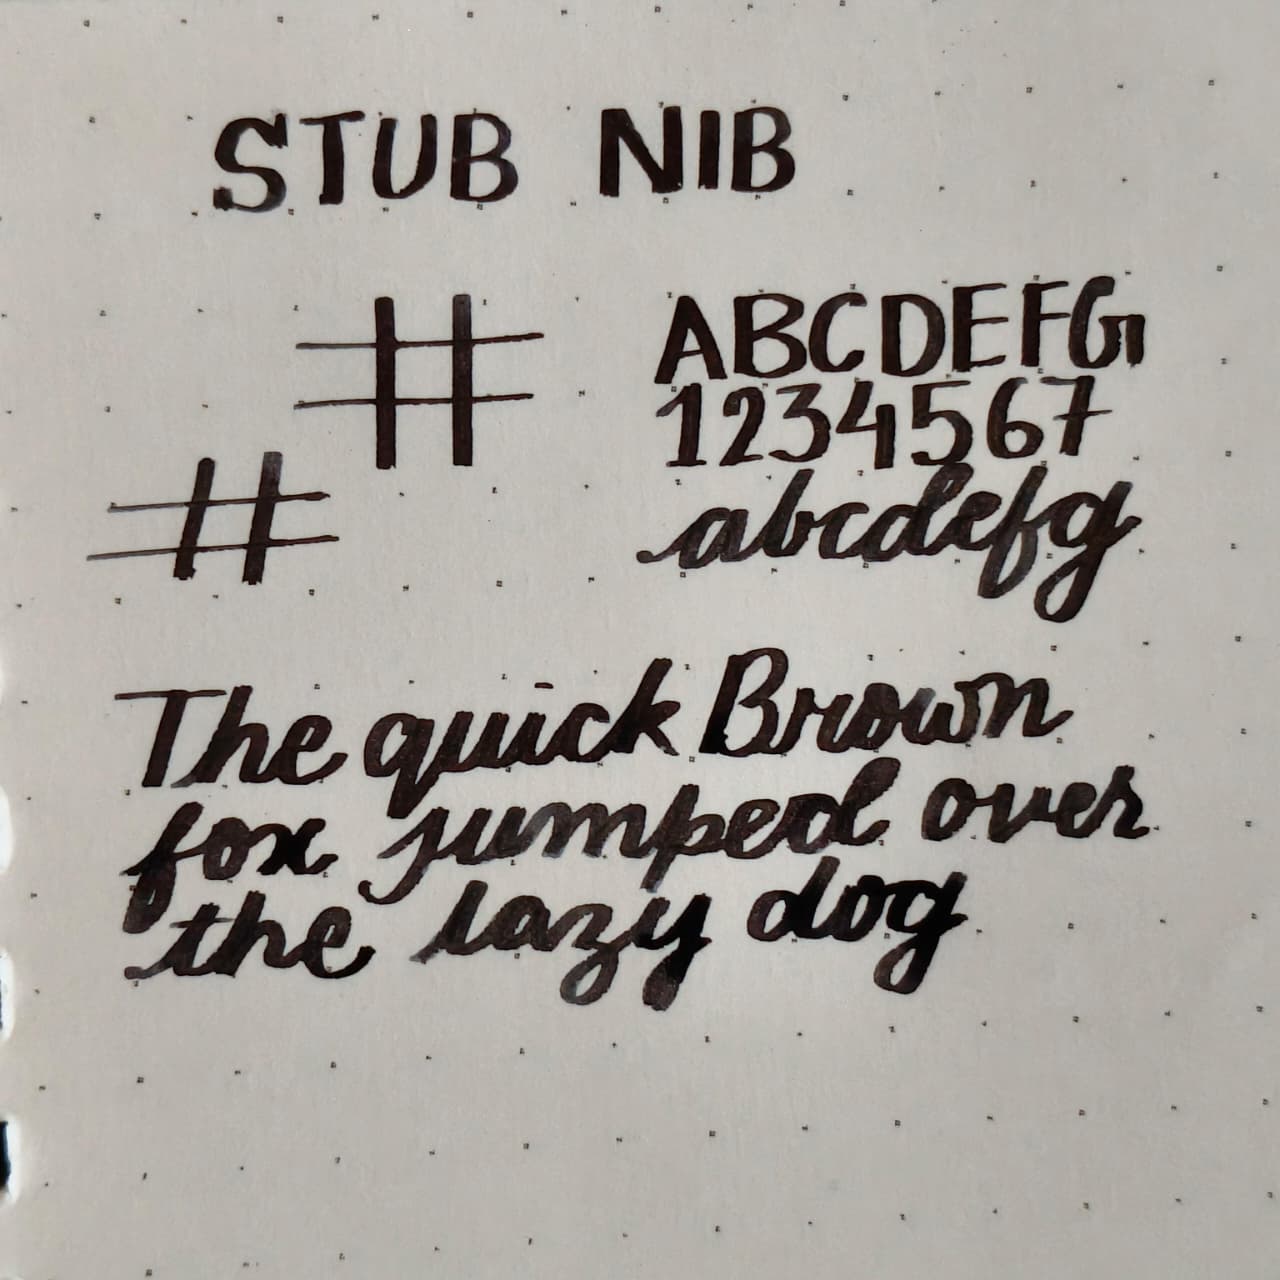 STUB NIB
#
ABCDEFG
1234567
#
abcdefg
The quick Brown
fox jumped over
the lazy dog